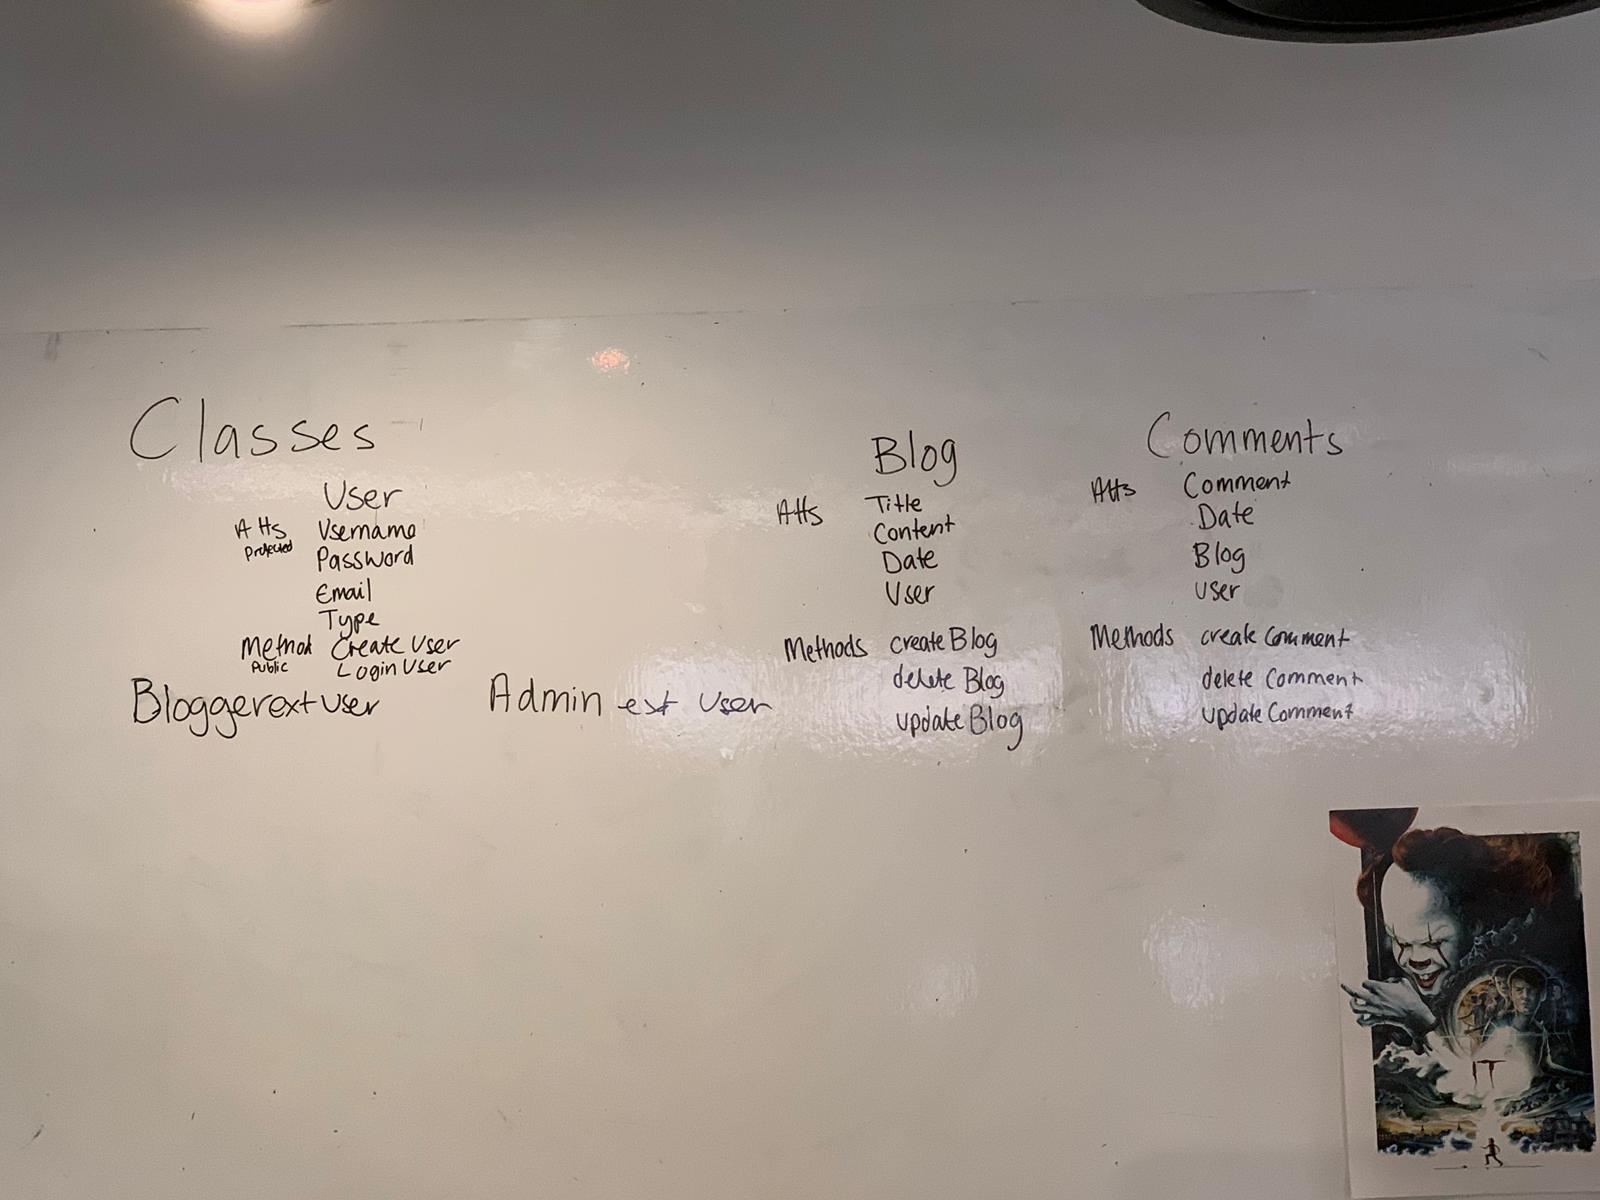 Classes
User
Atts Username
Protected Password
Email
Type
Method Create User
Public Login User
Blogger ext User
Admin ext User
Blog
Atts Title
Content
Date
User
Methods create Blog
delete Blog
update Blog
Comments
Atts Comment
Date
Blog
user
Methods create Comment
delete Comment
update Comment
IT